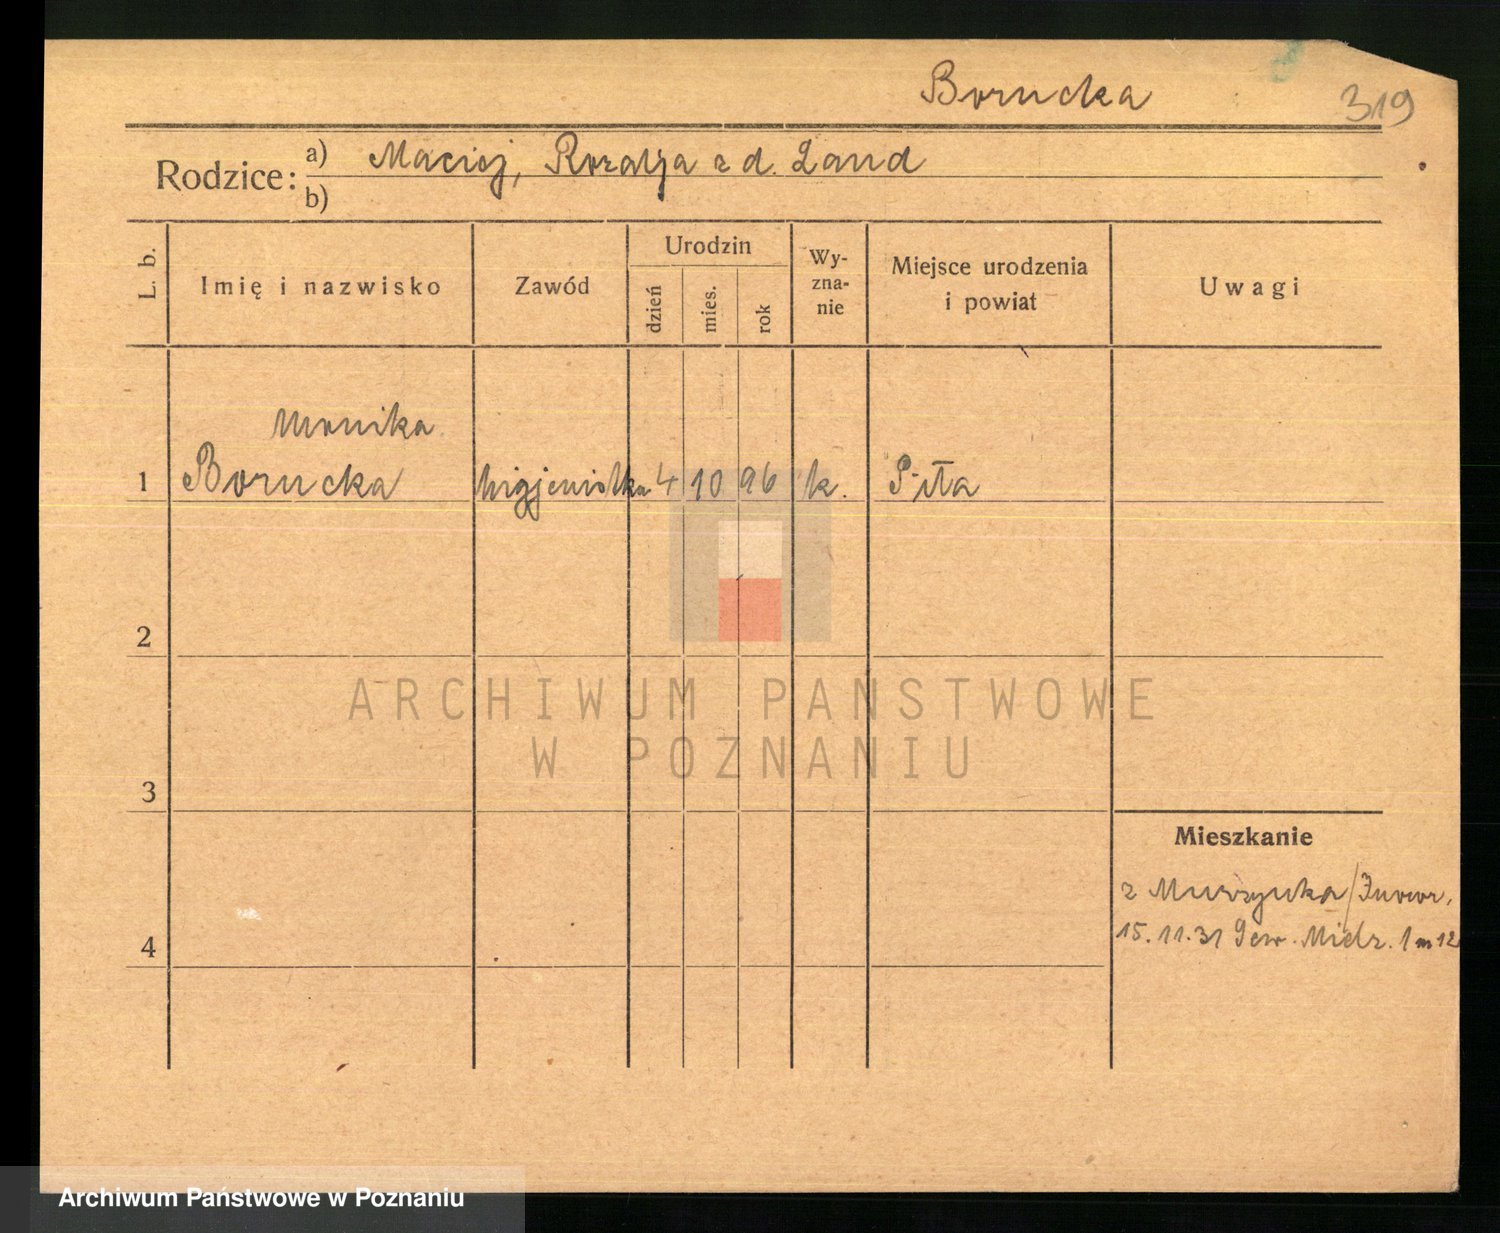 Borucka
319
Rodzice: a) Maciej, Rozalja z d. Land
b)
L. b.
Imię i nazwisko
Zawód
Urodzin
dzień
mies.
rok
Wy-
zna-
nie
Miejsce urodzenia
i powiat
Uwagi
Monika
1 Borucka higjenistka 4 10 96 k. Piła
2
3
4
Mieszkanie
z Murzynka/Inowr.
15.11.31 Gen. 1 m 12
ARCHIWUM PAŃSTWOWE
W POZNANIU
Archiwum Państwowe w Poznaniu